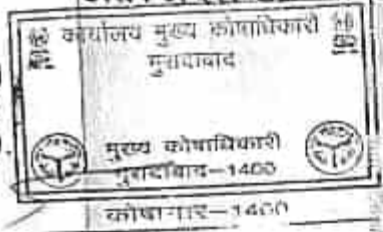 कार्यालय मुख्य कोषाधिकारी
मुरादाबाद
मुख्य कोषाधिकारी
मुरादाबाद-1400
कोषागार-1400